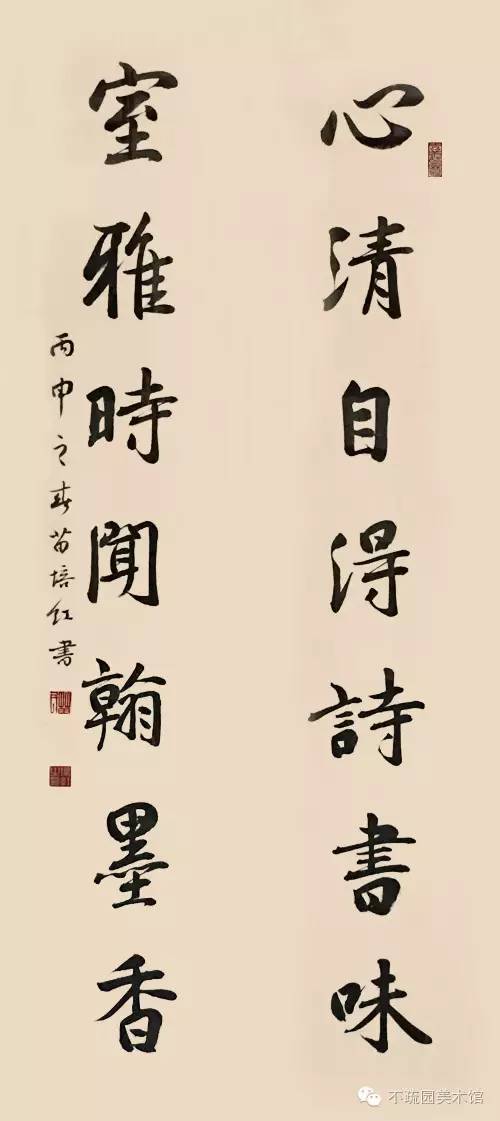 心清自得詩書味
室雅時聞翰墨香
丙申之春苗培红書
不疏园美术馆